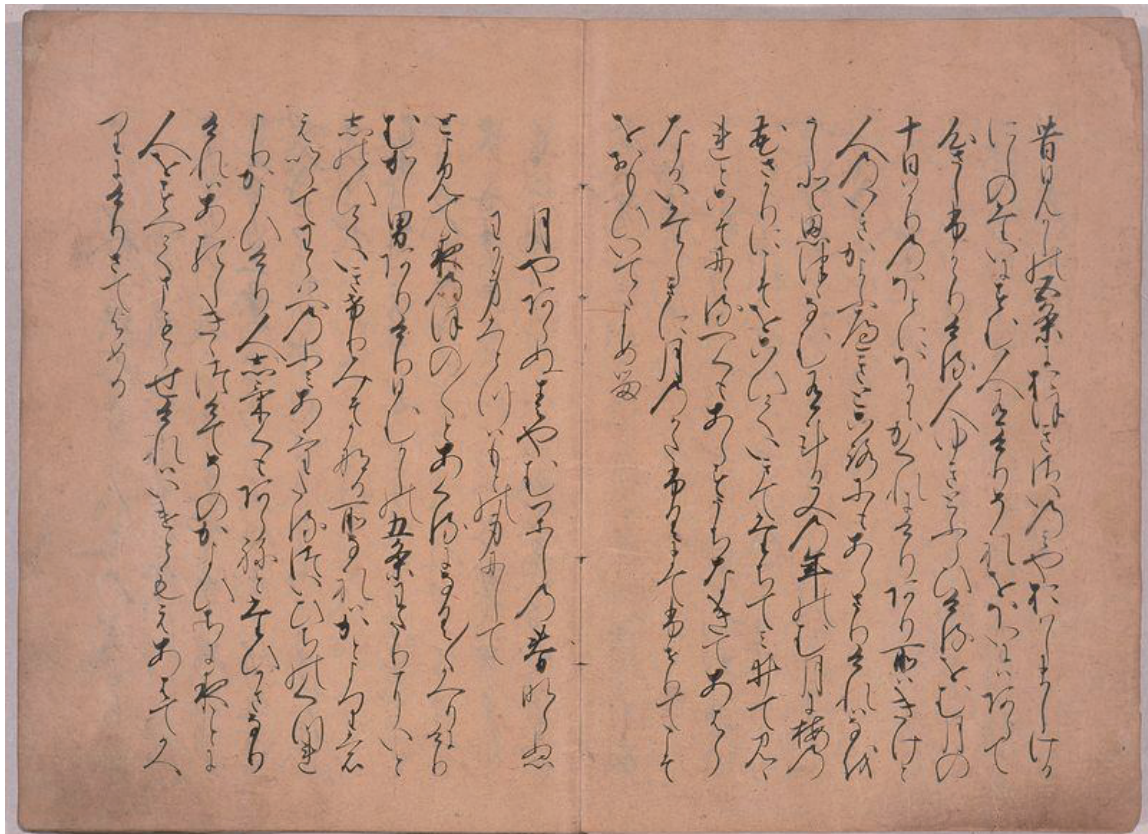 昔ひんかしの五条におほきさいの宮おはしましける
にしのたいにすむ人有けりそれをほいにはあらて
心さしふかゝりける人ゆきとふらひけるをむ月の
十日はかりのほとにほかにかくれにけりあり所はきけと
人のいきかよふへき所にもあらさりけれは猶
うしと思つゝなむ有ける又の年のむ月に梅の
花さかりにこそをこひていきてたちて見ゐて見
れとこそににるへくもあらすうちなきてあはら
なるいたしきに月のかたふくまてふせりてこそ
をおもひいてゝよめる
月やあらぬはるやむかしの春ならぬ
わか身ひとつはもとの身にして
とよみて夜のほの〱とあくるになく〱かへりにけり
むかし男ありけりひむかしの五条わたりにいと
しのひていきけりみそかなる所なれはかとよりも
えいらてわらはへのふみあけたるついひちのくつれ
よりかよひけり人しけくもあらねとたひかさなり
けれはあるしきゝつけてそのかよひちに夜ことに
人をすへてまもらせけれはいけともえあはてかへ
りにけりさてよめる